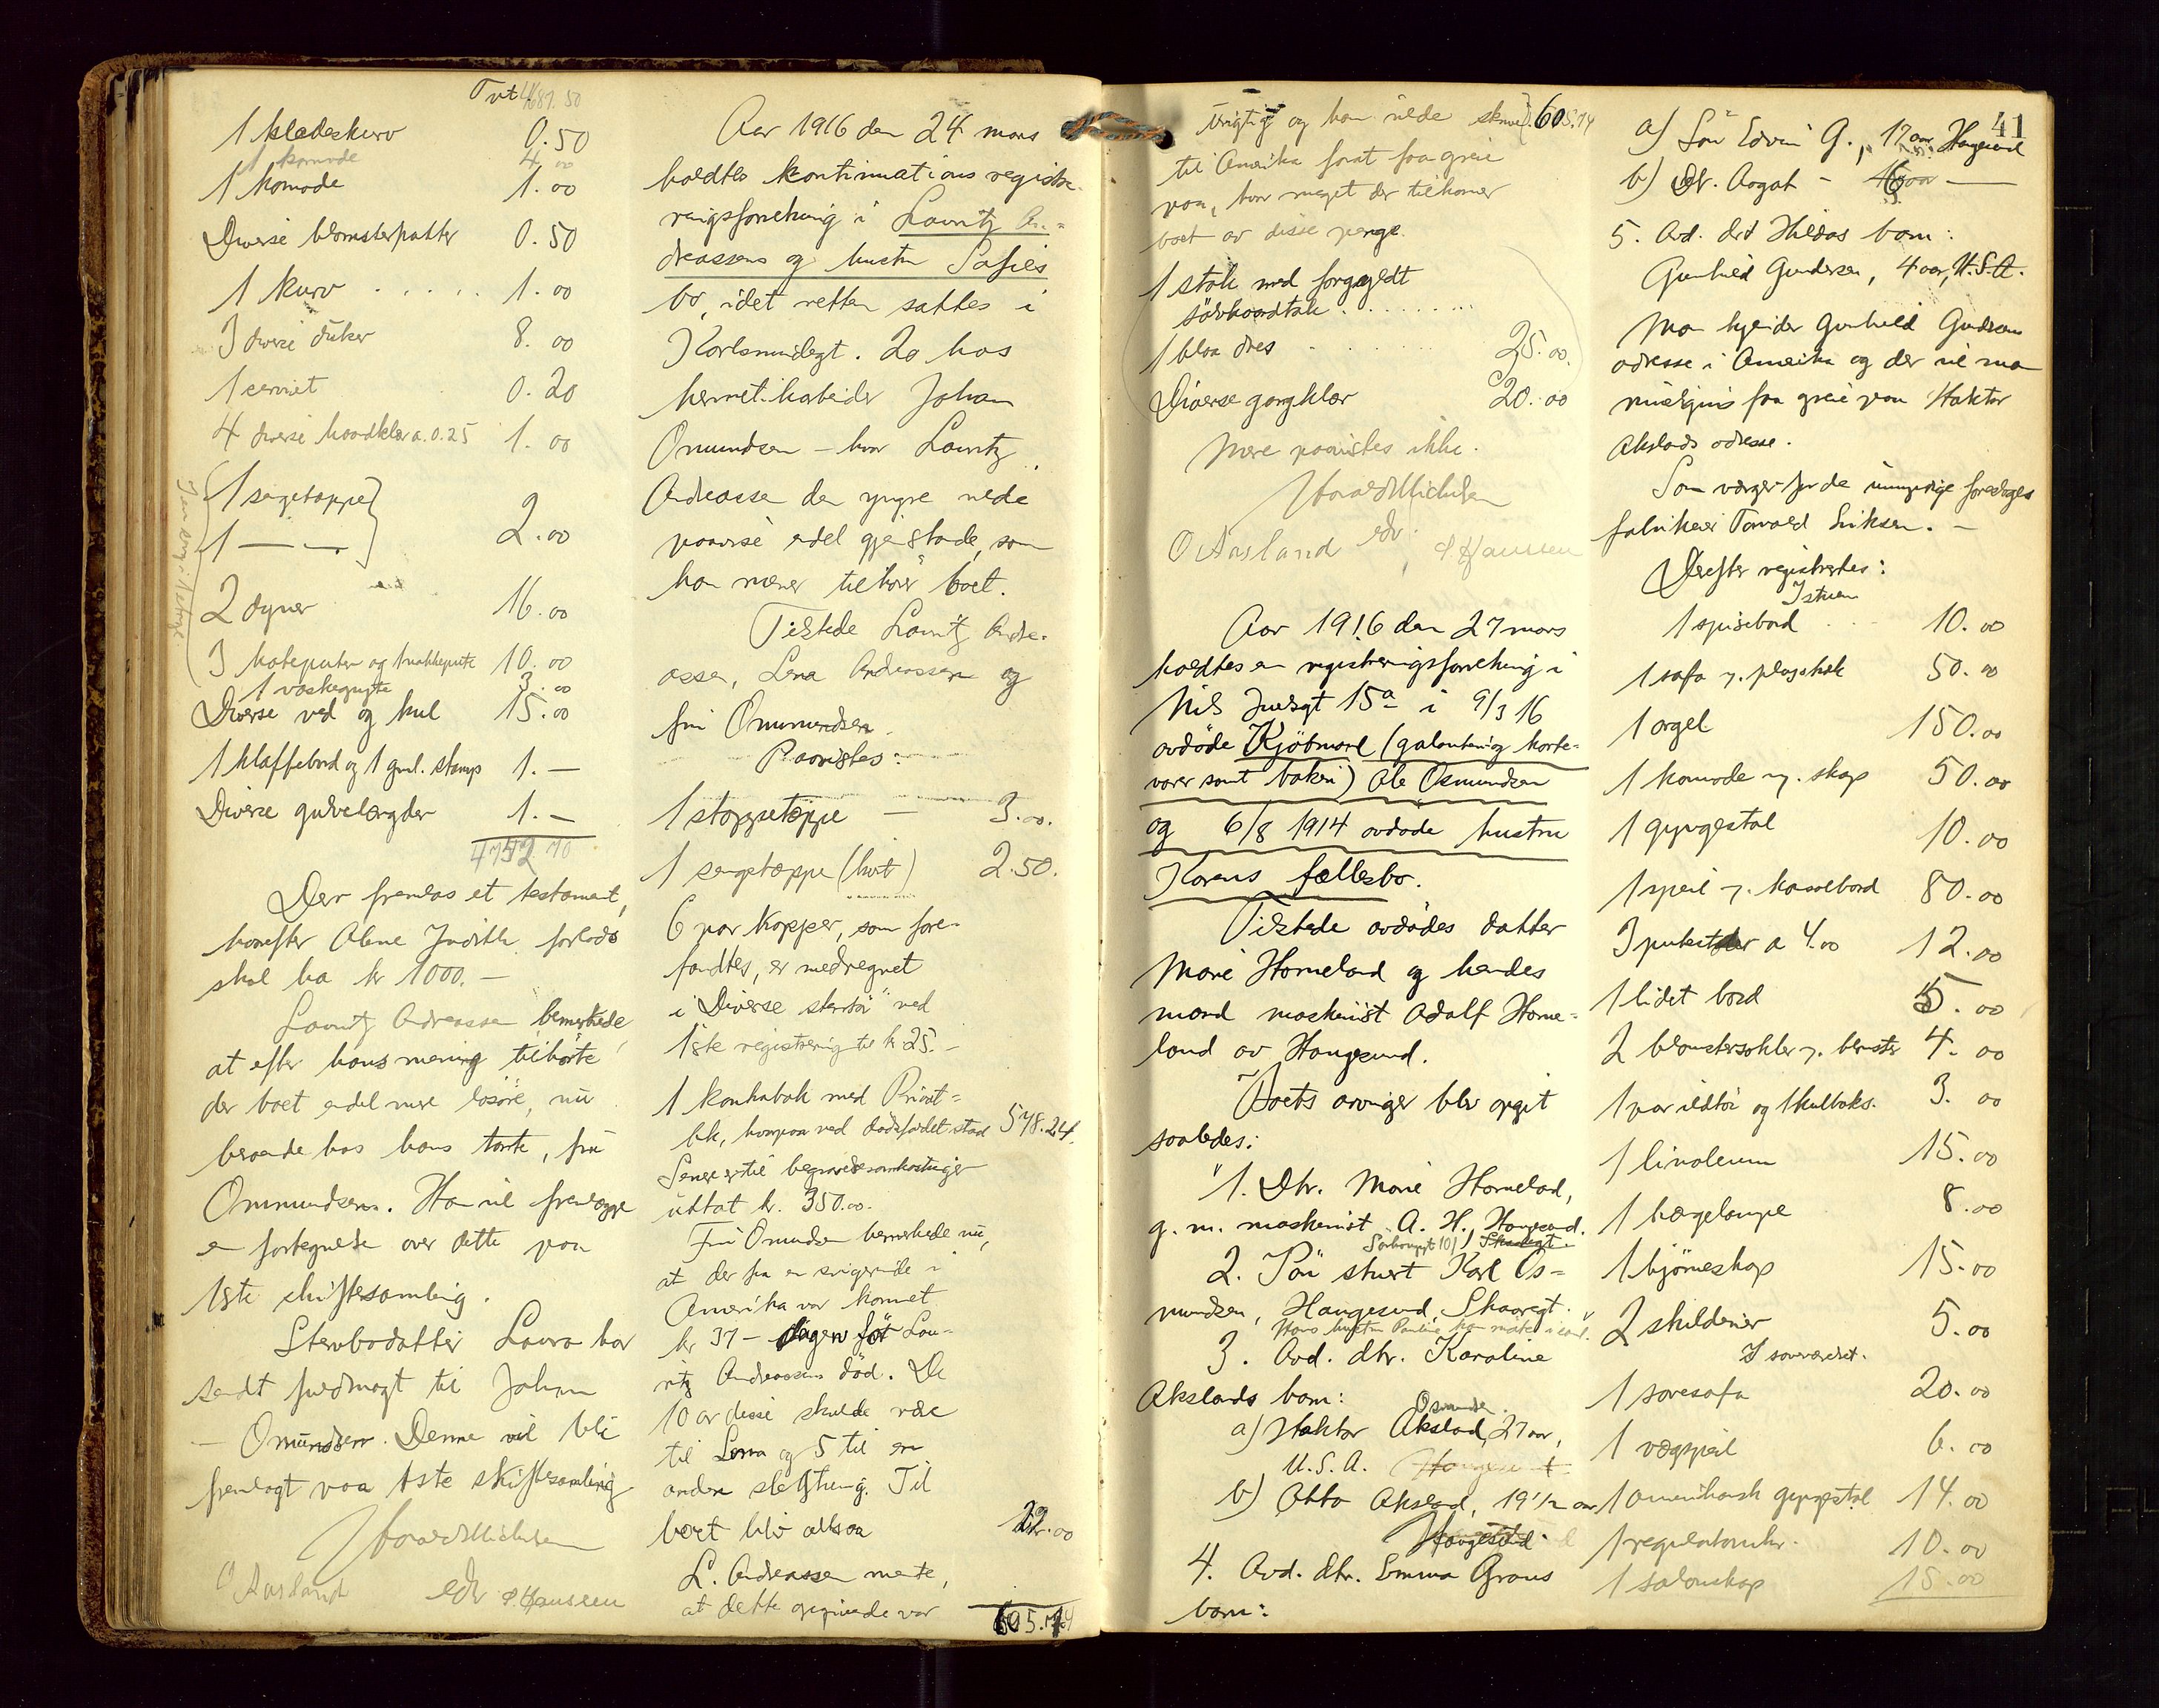 Trt. 4687.50
1 klædeskurv 0.50
1 komode 4 00
1 komode 1.00
Diverse blomsterpotter 0.50
1 kurv . . . . . 1.00
3 diverse duker 8.00
1 serviet 0.20
4 diverse haandklær a. 0.25 1.00
1 sengetæppe
1 — — 2.00
2 dyner 16.00
3 hodeputer og 1 nakkepute 10.00
1 vaskegryte 3.00
Diverse ved og kul 15.00
1 klaffebord og 1 gml. stamp 1.—
Diverse gulvlængder 1.—
4752.70
Der fremlas et testament,
hvorefter Aline Judith forlods
skal ha kr 1000.—
Lauritz Andreassen bemerkede,
at efter hans mening tilhørte
der boet endel mere løsøre, nu
beroende hos hans tante, fru
Ommundsen. Han vil fremlægge
en fortegnelse over dette paa
1ste skiftesamling.
Stervbodatter Laura har
sendt fuldmagt til Johan
— Omundsen. Denne vil bli
fremlagt paa 1ste skiftesamling
O Aasland edv. S Haussen
Aar 1916 den 24 mars
holdtes kontinuations registre-
ringsforretning i Lauritz An-
dreassens og hustru Sofies
bo, idet retten sattes i
Karlsmindegt. 20 hos
hermetikarbeider Johan
Omundsen — hvor Lauritz
Andreassen den yngre vilde
paavise endel gjenstande, som
han mener tilhører boet.
Tilstede Lauritz Andre-
assen, Lena Andreassen og
fru Ommundsen.
Paavistes:
1 stoppetæppe — 3.00.
1 sengetæppe (hvit) 2.50.
6 par kopper, som fore-
fandtes, er medregnet
i "Diverse stentøi" ved
1ste registrering til kr 25.—
1 kontrabok med Privat-
bk, hvorpaa ved dødsfaldet stod 578.24.
Senere er til begravelsesomkostninger
uttat kr. 350.00.
Fru Omundsen bemerkede nu,
at der fra en svigerinde i
Amerika var kommet
kr 37— dagen før Lau-
ritz Andreassens død. De
10 av disse skulde være
til Lena og 5 til en
anden slegtning. Til
boet blir altsaa 22.00
L. Andreassen mente,
at dette opgivende var
605.74
urigtig og han vilde skrive 605.74
til Amerika forat faa greie
paa, hvor meget der tilkommer
boet av disse penge.
1 stok med forgyldt
sølvhaandtak . . . . . . . .
1 blaa dres 25.00.
Diverse gangklær 20.00
Mere paavistes ikke.
O Aasland edv. S Haussen
Aar 1916 den 27 mars
holdtes en registreringsforretning i
Nils Juelsgt 15a i 9/3 16
avdøde Kjøbmand (galanteri og korte-
varer samt bakeri) Ole Osmundsen
og 6/8 1914 avdøde hustru
Karens fællesbo.
Tilstede avdødes datter
Marie Horneland og hendes
mand maskinist Adolf Horne-
land av Haugesund.
Boets arvinger blev opgit
saaledes:
"1. Dtr. Marie Horneland,
g. m. maskinist A. H., Haugesund.
2. Søn stuert Karl Os-
mundsen, Haugesund, Skaaregt.
3. Avd. dtr. Karoline
Akslands barn:
Osmundsen
a) Haktor Aksland, 27 aar,
U.S.A.
b) Otto Aksland, 19 1/2 aar,
Haugesund.
4. Avd. dtr. Emma Grans
barn:
41
a) Søn Edvin G., 17 aar Haugesund
b) Dt. Aagot —
5. Avd. dtr Hildas barn:
Gunhild Gundersen, 4 aar, U.S.A.
Man kjender Gunhild Gundersens
adresse i Amerika og der vil man
muligens faa greie paa Haktor
Akslands adresse.
Som værge for de umyndige foreslages
fabrikeier Torvald Eriksen. —
Derefter registrertes:
I stuen
1 spisebord 10.00
1 sofa m. plyschtræk 50.00
1 orgel 150.00
1 komode m. skap 50.00
1 gyngestol 10.00
1 speil m. konsolbord 80.00
3 putestoler a 4.00 12.00
1 lidet bord 5.00
2 blomstersokler m. blomster 4.00
1 par ildtøi og 1 kulboks. 3.00
1 linoleum 15.00
1 hægelampe 8.00
1 hjørneskap 15.00
2 skilderier 5.00
I soveværelset.
1 sovesofa 20.00
1 vægspeil 6.00
1 amerikansk gyngestol 14.00
1 regulatorur. 10.00
1 salonskap 15.00